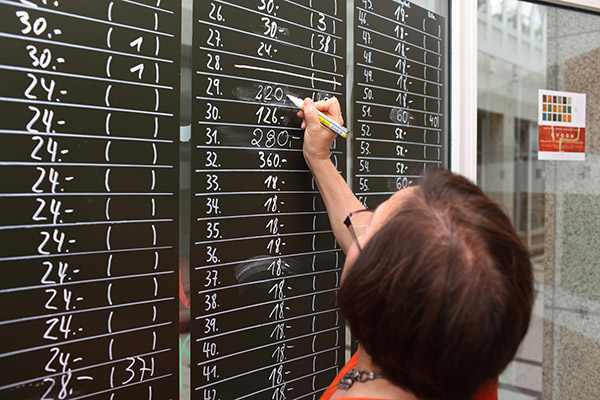 30.-
30.- ( 1 )
30.- ( 1 )
24.- ( )
24.- ( )
24.- ( )
24.- ( )
24.- ( )
24.- ( )
24.- ( )
24.- ( )
24.- ( )
24.- ( 37 )
28.-
26. 30.- ( )
27. 30.- ( 38 )
28. 24.-
29. 220
30. 126.-
31. 280.-
32. 360.-
33. 18.-
34. 18.-
35. 18.-
36. 18.-
37. 18.-
38. 18.-
39. 18.-
40. 18.-
41. 18.-
42. 18.-
45. 18.-
46. 18.-
47. 18.-
48. 18.-
49. 18.-
50. 18.-
51. 60.-
52. 58.- ( 40 )
53. 58.-
54. 58.-
55. 60.-